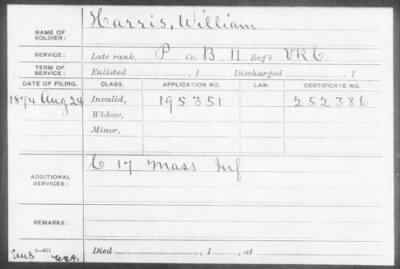 NAME OF SOLDIER: Harris, William
SERVICE: Late rank, P Co. B, 11 Reg't VRC
TERM OF SERVICE: Enlisted , 1 Discharged , 1
DATE OF FILING. CLASS. APPLICATION NO. LAW. CERTIFICATE NO.
1874 Aug 24 Invalid, 195351 252386
Widow,
Minor,
ADDITIONAL SERVICES: C 17 Mass Inf
REMARKS:
Died , 1 , at